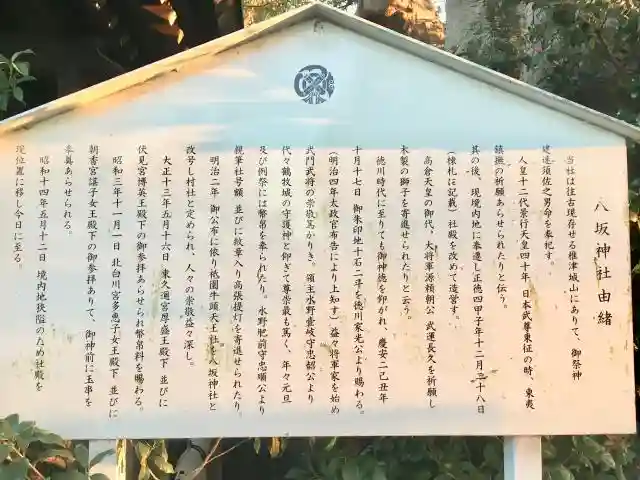 八坂神社由緒
当社は往古現存せる椎津城山にありて、御祭神
建速須佐之男命を奉祀す。
人皇十二代景行天皇四十年 日本武尊東征の時、東夷
鎮撫の祈願あらせられたりと伝う。
其の後、現境内地に奉遷し正徳四甲子年十二月二十八日
(棟札に記載)社殿を改めて造営す。
高倉天皇の御代、大将軍源頼朝公 武運長久を祈願し
木製の獅子を寄進せられたりと云う。
徳川時代に至りても御神徳を仰がれ、慶安二己丑年
十月十七日 御朱印地十石二斗を徳川家光公より賜わる。
(明治四年太政官布告により上知す)益々将軍家を始め
武門武将の崇敬篤かりき。領主水野壹岐守忠韶公より
代々鶴牧城の守護神と仰ぎて尊崇最も篤く、年々元旦
及び例祭には幣帛を奉られたり。水野肥前守忠順公より
親筆社号額 並びに紋章入り高張提灯を寄進せられたり。
明治二年 御公布に依り祇園牛頭天王社を八坂神社と
改号し村社と定められ、人々の崇敬益々深し。
大正十三年五月十六日 東久邇宮厚・盛王殿下 並びに
伏見宮博英王殿下の御参拝あらせられ幣帛料を賜わる。
昭和三年十一月一日 北白川宮多恵子女王殿下 並びに
朝香宮諶子女王殿下の御参拝ありて、御神前に玉串を
奉奠あらせられる。
昭和十四年五月十二日 境内地狭隘のため社殿を
現位置に移し今日に至る。